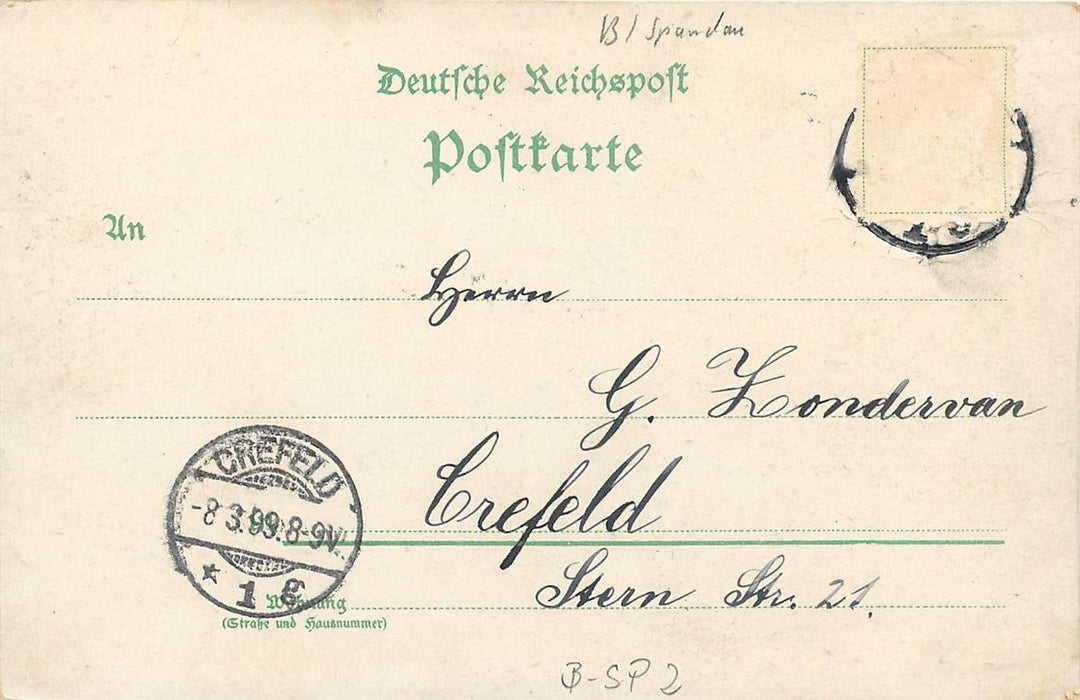 B / Spandau
Deutsche Reichspost
Postkarte
An
Herrn
G. Zondervan
Crefeld
Stern Str. 21.
CREFELD
-8 3.99.8-9V.
* 1 g
Wohnung
(Straße und Hausnummer)
B-SP 2